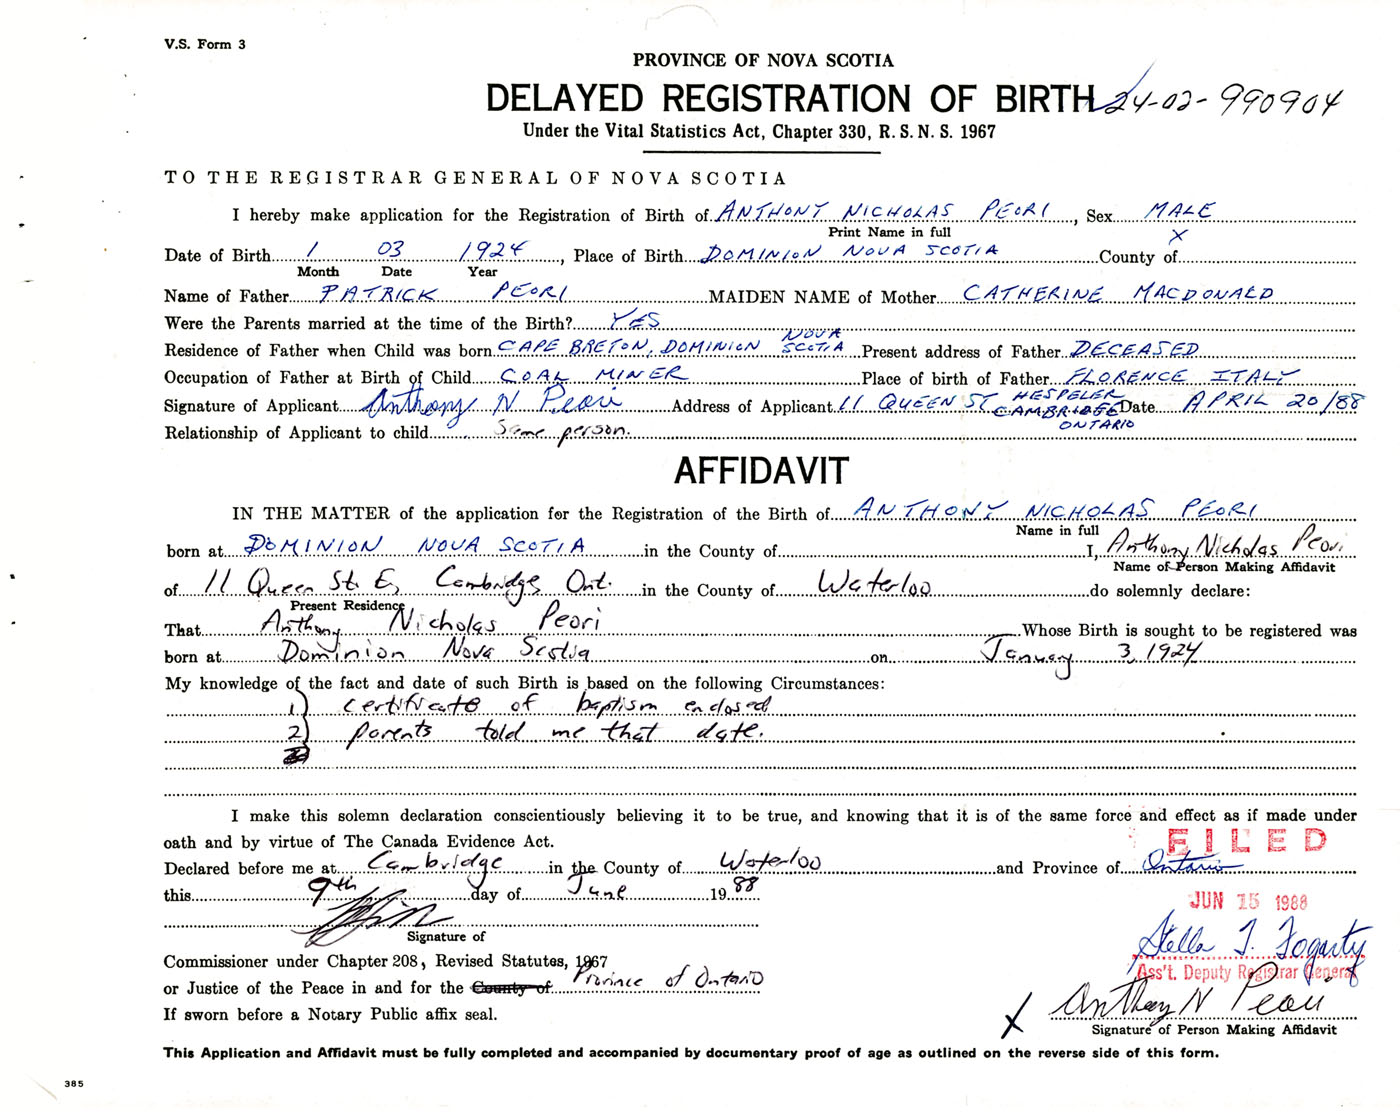 V.S. Form 3
PROVINCE OF NOVA SCOTIA
DELAYED REGISTRATION OF BIRTH 24-02-990904
Under the Vital Statistics Act, Chapter 330, R. S. N. S. 1967
TO THE REGISTRAR GENERAL OF NOVA SCOTIA
I hereby make application for the Registration of Birth of ANTHONY NICHOLAS PEORI, Sex MALE
Print Name in full
Date of Birth 1 03 1924, Place of Birth DOMINION NOVA SCOTIA County of X
Month Date Year
Name of Father PATRICK PEORI MAIDEN NAME of Mother CATHERINE MACDONALD
Were the Parents married at the time of the Birth? YES
Residence of Father when Child was born CAPE BRETON, DOMINION NOVA SCOTIA Present address of Father DECEASED
Occupation of Father at Birth of Child COAL MINER Place of birth of Father FLORENCE ITALY
Signature of Applicant Anthony N Peori Address of Applicant 11 QUEEN ST HESPELER CAMBRIDGE ONTARIO Date APRIL 20/88
Relationship of Applicant to child Same person.
AFFIDAVIT
IN THE MATTER of the application for the Registration of the Birth of ANTHONY NICHOLAS PEORI
Name in full
born at DOMINION NOVA SCOTIA in the County of I, Anthony Nicholas Peori
Name of Person Making Affidavit
of 11 Queen St. E, Cambridge, Ont. in the County of Waterloo do solemnly declare:
Present Residence
That Anthony Nicholas Peori Whose Birth is sought to be registered was
born at Dominion Nova Scotia on January 3, 1924
My knowledge of the fact and date of such Birth is based on the following Circumstances:
1) certificate of baptism enclosed
2) parents told me that date.
I make this solemn declaration conscientiously believing it to be true, and knowing that it is of the same force and effect as if made under
oath and by virtue of The Canada Evidence Act.
FILED
Declared before me at Cambridge in the County of Waterloo and Province of Ontario
this 9th day of June 1988
JUN 15 1988
Signature of
Stella T. Fogarty
Commissioner under Chapter 208, Revised Statutes, 1967
Ass't. Deputy Registrar General
or Justice of the Peace in and for the County of Province of Ontario
X Anthony N Peori
If sworn before a Notary Public affix seal.
Signature of Person Making Affidavit
This Application and Affidavit must be fully completed and accompanied by documentary proof of age as outlined on the reverse side of this form.
385